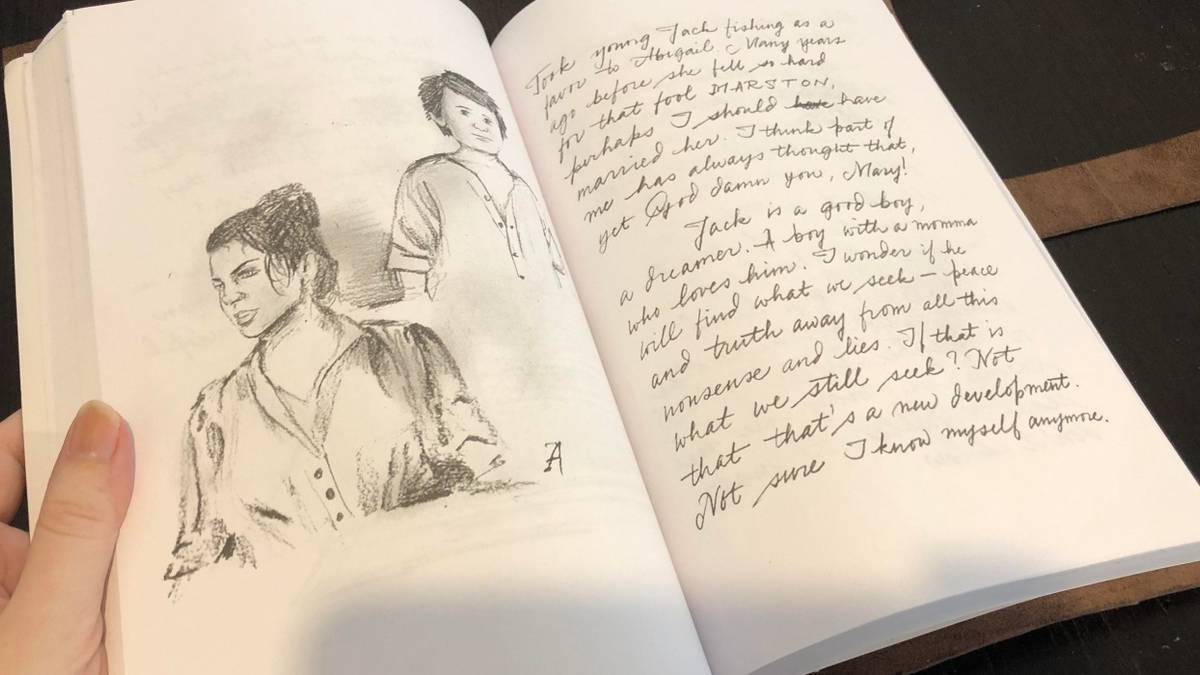 Took young Jack fishing as a
favor to Abigail. Many years
ago before she fell so hard
for that fool MARSTON,
perhaps I should have have
married her. I think part of
me has always thought that,
yet God damn you, Mary!
Jack is a good boy,
a dreamer. A boy with a momma
who loves him. I wonder if he
will find what we seek – peace
and truth away from all this
nonsense and lies. If that is
what we still seek? Not
that that's a new development.
Not sure I know myself anymore.